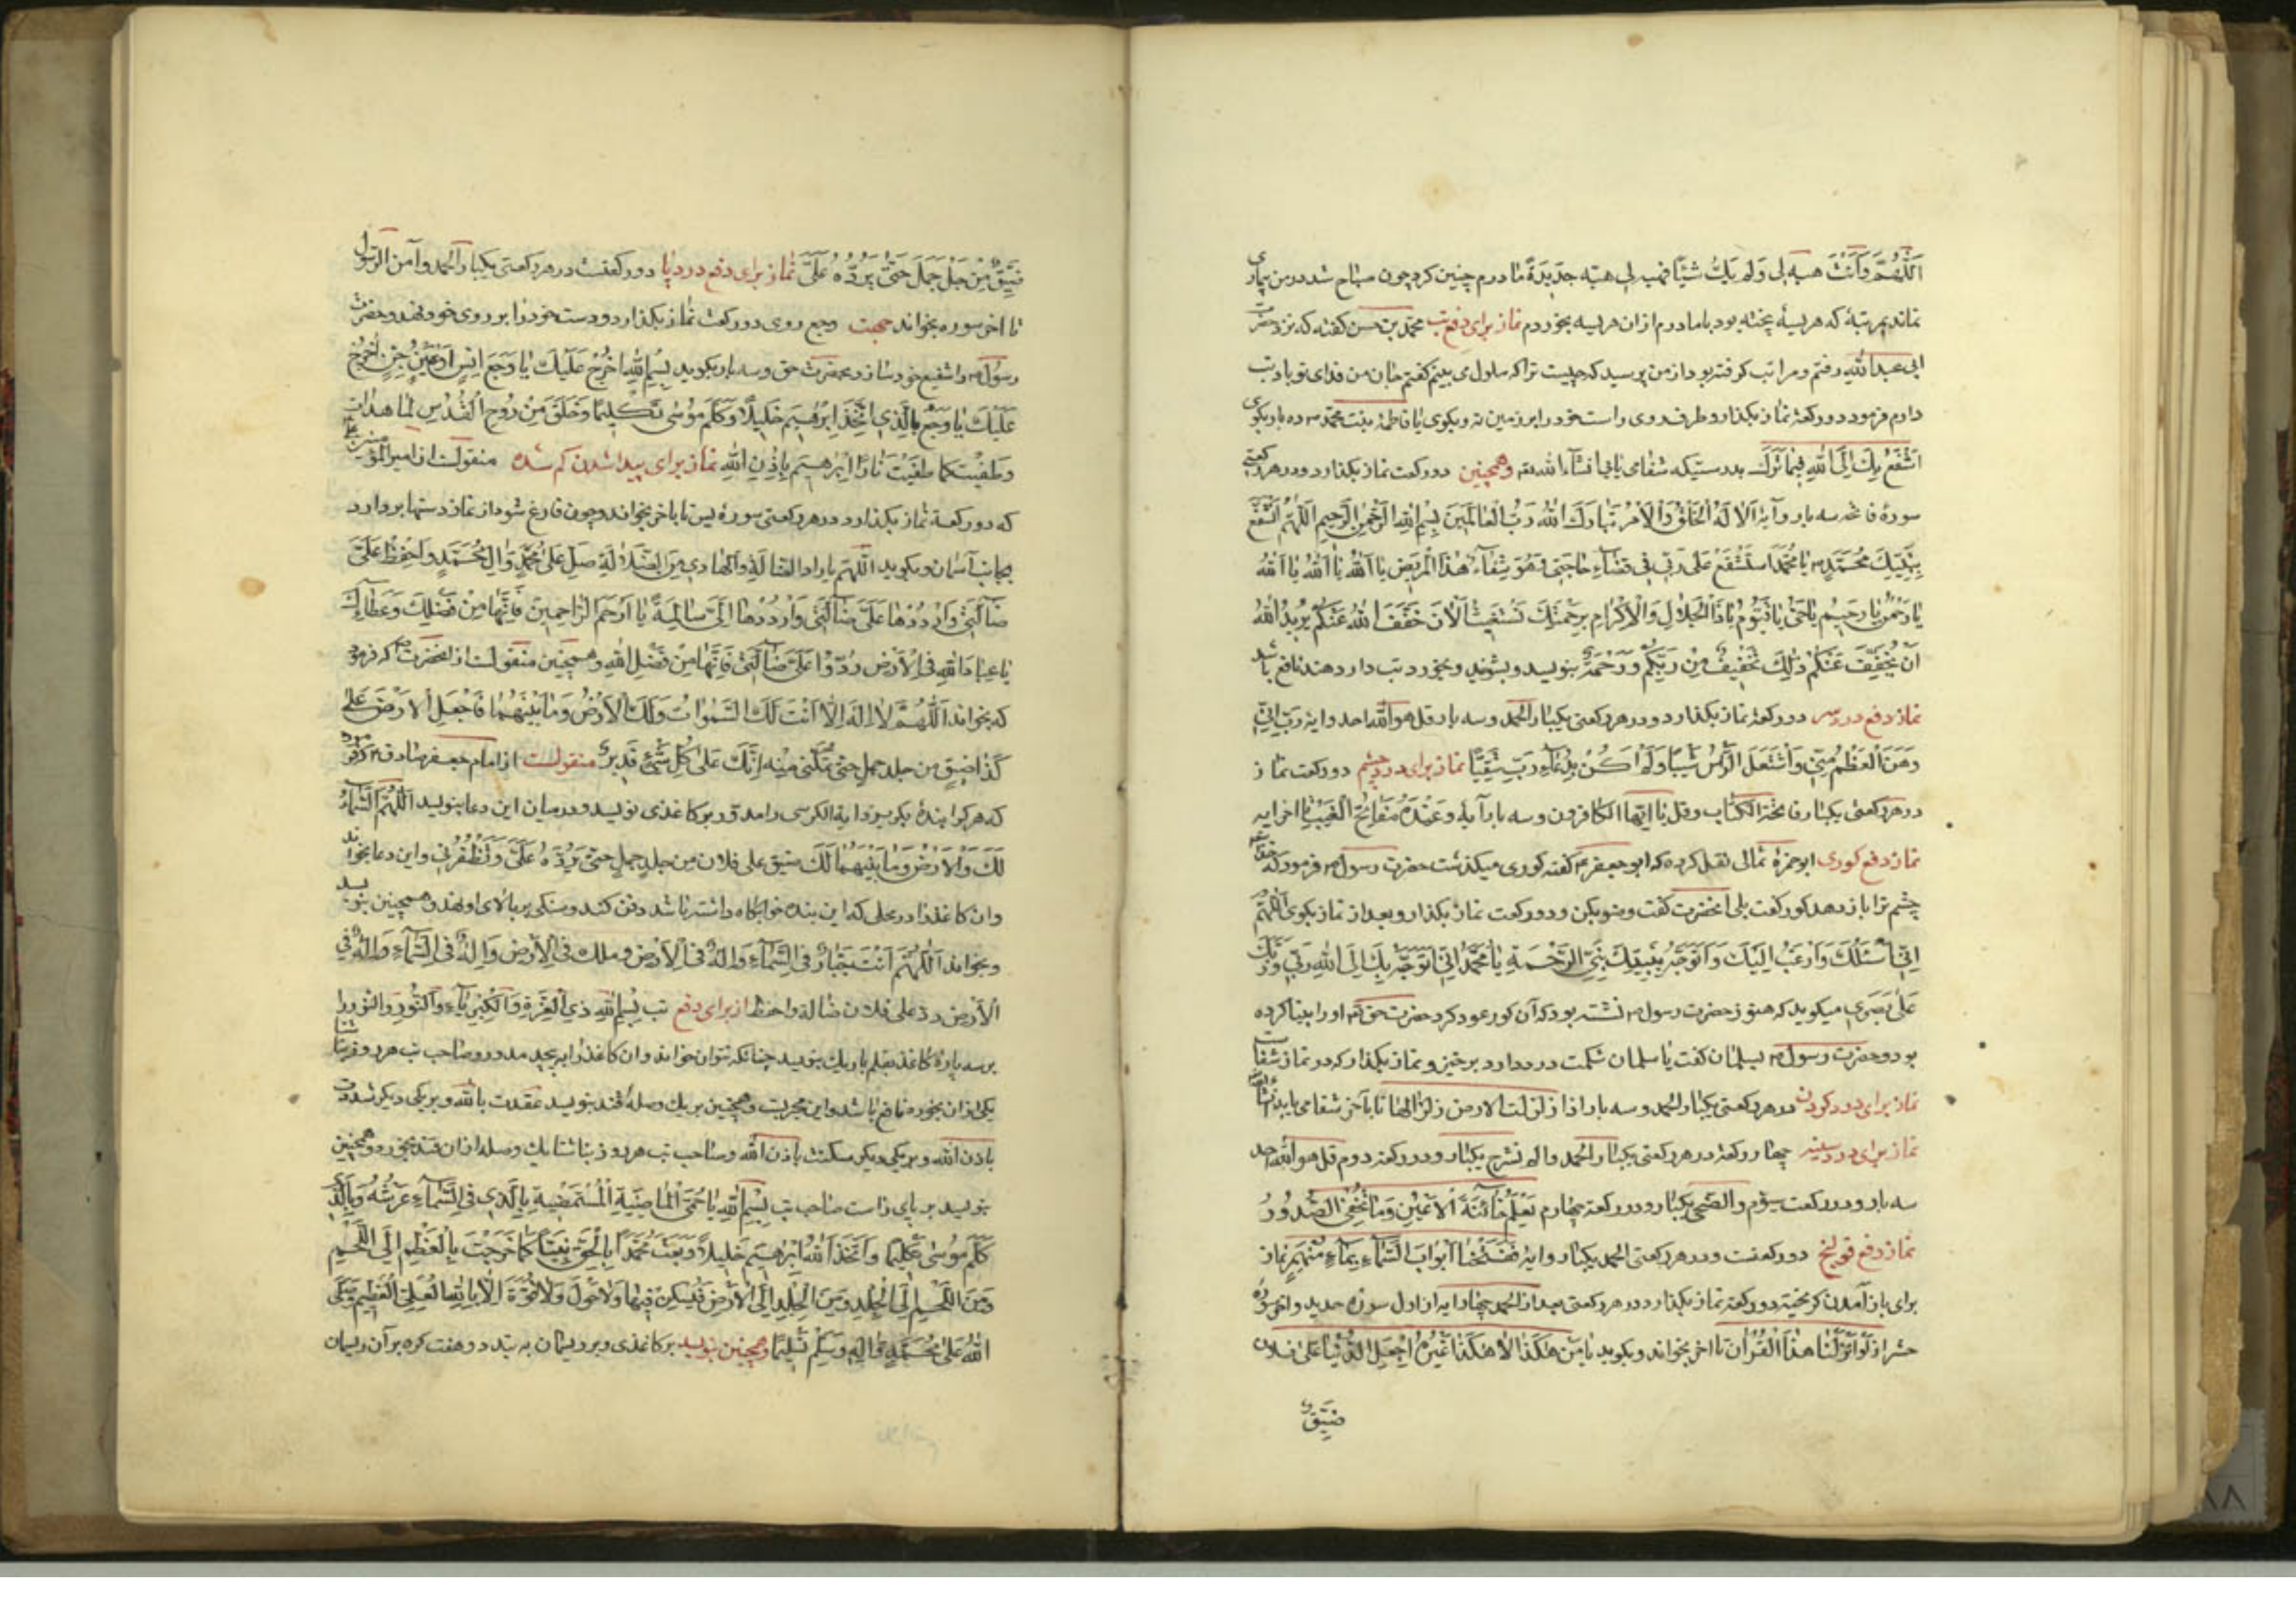 اَللّٰهُمَّ وَاَنْتَ هبته لی وَلَم یَكُ شَیْئًا فهب لی هبته جَدیدَةً مادرم چنین کرد چون صباح شد در من بیماری
نماند بمرتبهٔ که هریسهٔ پخته بود با مادرم ازان هریسه بخوردم نماز برای دفع تب محمد بن حسن گفته که نزد حضرت
ابی عبدالله رفتم و مرا تب گرفته بود از من پرسید که چیست ترا که ملول می بینم گفتم جان من فدای تو باد تب
دارم فرمود دو رکعة نماز بگذار و طرف روی راست خود را بر زمین نه و بگوی یا فاطمهٔ بنت محمد ده بار بگوی
اَتَشَفَّعُ بِكِ اِلَی اللهِ فیما نَزَلَ بدرستیکه شفا می یابی انشآء الله و همچنین دو رکعت نماز بگذارد و در هر رکعتی
سورهٔ فاتحه سه بار و آیهٔ اَلا لَهُ الْخَلْقُ وَالْاَمْرُ تَبارَكَ اللهُ رَبُّ الْعالَمینَ بِسْمِ اللهِ الرَّحْمٰنِ الرَّحیمِ اَللّٰهُمَّ اَتَشَفَّعُ
بِنَبِیِّكَ مُحَمَّدٍ یا مُحَمَّدُ اَسْتَشْفَعُ عَلی رَبّی فی قَضآءِ حاجَتی وَهُوَ شِفآءُ هٰذَا الْمَریضِ یا اَللهُ یا اَللهُ یا اَللهُ
یا رَحْمٰنُ یا رَحیمُ یا حَیُّ یا قَیُّومُ یا ذَا الْجَلالِ وَالْاِكْرامِ بِرَحْمَتِكَ نَسْتَغیثُ اَلْاٰنَ خَفَّفَ اللهُ عَنْكُم یُریدُ اللهُ
اَنْ یُخَفِّفَ عَنْكُمْ ذٰلِكَ تَخْفیفٌ مِنْ رَبِّكُم وَرَحْمَةٌ بنویسد و بشوید و بخورد تب دار دهند نافع باشد
نماز دفع درد سر دو رکعة نماز بگذارد و در هر رکعتی یکبار الحمد و سه بار قل هو الله احد و ایهٔ رَبِّ اِنّی
وَهَنَ الْعَظْمُ مِنّی وَاشْتَعَلَ الرَّأْسُ شَیْبًا وَلَم اَكُنْ بِدُعآءِكَ رَبِّ شَقِیًّا نماز برای درد چشم دو رکعت نماز
در هر رکعتی یکبار فاتحة الکتاب و قل یا ایها الکافرون و سه بار آیهٔ وَعِنْدَهُ مَفاتِحُ الْغَیْبِ تا اخر ایه
نماز دفع کوری ابوحمزهٔ ثمالی نقل کرده که ابوجعفر گفته کوری میگذشت حضرت رسول فرمود که خدا
چشم ترا باز دهد کور گفت بلی انحضرت گفت وضو بکن و دو رکعت نماز بگذار و بعد از نماز بگوی اَللّٰهُمَّ
اِنّی اَسْئَلُكَ وَاَرْغَبُ اِلَیْكَ وَاَتَوَجَّهُ بِنَبِیِّكَ نَبِیِّ الرَّحْمَةِ یا مُحَمَّدُ اِنّی اَتَوَجَّهُ بِكَ اِلَی اللهِ رَبّی وَرَبِّكَ
عَلیٰ بَصَری میگوید که هنوز حضرت رسول نشسته بود که آن کور عود کرد حضرت حق او را بینا کرده
بود و حضرت رسول بسلمان گفت یا سلمان شکمت درد دارد برخیز و نماز بگذار که در نماز شفاست
نماز برای درد گردن در هر رکعتی یکبار الحمد و سه بار اذا زلزلت الارض زلزالها تا بآخر شفا می یابد انشآ الله
نماز برای درد سینه چهار رکعة در هر رکعتی یکبار الحمد و الم نشرح یکبار و در رکعة دوم قل هو الله احد
سه بار و در رکعت سیوم والضحی یکبار و در رکعة چهارم یَعْلَمُ خائِنَةَ الْاَعْیُنِ وَما تُخْفِی الصُّدُورُ
نماز دفع قولنج دو رکعتست و در هر رکعتی الحمد یکبار و ایهٔ فَفَتَحْنا اَبْوابَ السَّمآءِ بِمآءٍ مُنْهَمِرٍ نماز
برای باز آمدن گریخته دو رکعة نماز بگذارد و در هر رکعتی بعد از الحمد چهار ایه از اول سورهٔ حدید و اخر سورهٔ
حشر از لَوْ اَنْزَلْنا هٰذَا الْقُرْاٰنَ تا اخر بخواند و بگوید یا مَنْ هٰكَذا لا هٰكَذا غَیْرُهُ اجْعَلِ الدُّنْیا عَلی فلان
ضیق
ضَیِّقَ مِنْ جَلَّ جَمَلَ حَتّیٰ یَرُدَّهُ عَلَیَّ نماز برای دفع درد پا دو رکعتست در هر رکعتی یکبار الحمد و آمن الرسول
تا اخر سوره بخواند جهت وجع روی دو رکعت نماز بگذارد و دست خود را بر روی خود نهد و حضرت
رسول را شفیع خود سازد بحضرت حق و سه بار بگوید بِسْمِ اللهِ اُخْرُجْ عَلَیْكَ یا وَجَعُ اِنْسٍ اَوْ عَیْنُ جِنٍّ اُخْرُجْ
عَلَیْكَ یا وَجَعُ بِالَّذی اتَّخَذَ اِبْرٰهیمَ خَلیلًا وَكَلَّمَ مُوسیٰ تَكْلیمًا وَخَلَقَ مِنْ رُوحِ الْقُدُسِ لَمّا هدأت
و طَفِیْتَ كَما طَفِیَتْ نارُ اِبْرٰهیمَ بِاِذْنِ اللهِ نماز برای پیدا شدن گم شده منقولست از امیرالمؤمنین
که دو رکعة نماز بگذارد در هر رکعتی سورهٔ یس تا باخر بخواند و چون فارغ شود از نماز دستها بردارد
بجانب آسمان و بگوید اَللّٰهُمَّ یا رادَّ الضّالَّةِ وَالْهادی مِنَ الضَّلالَةِ صَلِّ عَلیٰ مُحَمَّدٍ وَاٰلِ مُحَمَّدٍ وَاحْفِظْ عَلَیَّ
ضآلَّتی وَارْدُدْها عَلَیَّ ضآلَّتی وَارْدُدْها اِلَیَّ سالِمَةً یا اَرْحَمَ الرّاحِمینَ فَاِنَّها مِنْ فَضْلِكَ وَعَطائِكَ
یا عِبادَ اللهِ فِی الْاَرْضِ رُدُّوا عَلَیَّ ضآلَّتی فَاِنَّها مِنْ فَضْلِ اللهِ و همچنین منقولست از انحضرت که فرمود
که بخواند اَللّٰهُمَّ لا اِلٰهَ اِلّا اَنْتَ لَكَ السَّمٰوٰاتُ وَلَكَ الْاَرْضُ وَما بَیْنَهُما فَاجْعَلِ الْاَرْضَ عَلیٰ
كَذا اضیق من جلد جمل حتی تمكننی مِنْه اِنَّكَ عَلیٰ كُلِّ شَیْءٍ قَدیرٌ منقولست از امام جعفر صادق فرمود
که هر کرا بندهٔ بگریزد ایة الکرسی را مدوّر بر کاغذی نویسد و در میان این دعا بنویسد اَللّٰهُمَّ السَّمآءُ
لَكَ وَالْاَرْضُ وَما بَیْنَهُما لَكَ ضیق علی فلان من جلد جمل حتی یَرُدَّهُ عَلَیَّ وَتُظْفِرُنی و این دعا بخواند
وان کاغذ را در محلی که این بنده خوابگاه داشته باشد دفن کند و سنگی بر بالای او نهد و همچنین بنویسد
و بخواند اَللّٰهُمَّ اَنْتَ جَبّارٌ فِی السَّمآءِ وَاِلٰهٌ فِی الْاَرْضِ و ملك فِی الْاَرْضِ وَاِلٰهٌ فِی السَّمآءِ وَاِلٰهٌ فِی
الْاَرْضِ ردّ علی فلان ضالة واحفظ از برای دفع تب بِسْمِ اللهِ ذِی الْعِزَّةِ وَالْكِبْرِیآءِ وَالنُّورِ والنور را
بر سه پارهٔ کاغذ بقلم باریك بنویسد چنانکه نتوان خواند وان کاغذ را بپیچد مدور و صاحب تب هر روز ناشتا
یکی ازان بخورد نافع باشد و این مجربست و همچنین بر یك وصلهٔ قند بنویسد عقدت بالله و بر یکی دیگر شددت
باذن الله و بر یکی دیگر سكنت باذن الله و صاحب تب هر روز بناشتا یك وصله ازان قند بخورد و همچنین
بنویسد بر پای راست صاحب تب بِسْمِ اللهِ یا حُمَّی الْماضِیَةِ الْمُسْتَمْضِیَةِ بِالَّذی فِی السَّمآءِ عَرْشُهُ وَبِالَّذی
كَلَّمَ مُوسیٰ تَكْلیمًا وَاتَّخَذَ اللهُ اِبْرٰهیمَ خَلیلًا وَبَعَثَ مُحَمَّدًا بِالْحَقِّ نَبِیًّا كَما خَرَجْتَ بِالْعَظْمِ اِلَی اللَّحْمِ
وَمِنَ اللَّحْمِ اِلَی الْجِلْدِ وَمِنَ الْجِلْدِ اِلَی الْاَرْضِ فَتَسْكُنُ فیها وَلا حَوْلَ وَلا قُوَّةَ اِلّا بِاللهِ الْعَلِیِّ الْعَظیمِ وَصَلَّی
اللهُ عَلیٰ مُحَمَّدٍ وَاٰلِهِ وَسَلَّمَ تَسْلیمًا و همچنین بنویسد بر کاغذی و بر ریسمان به بندد و هفت گره بر آن ریسمان